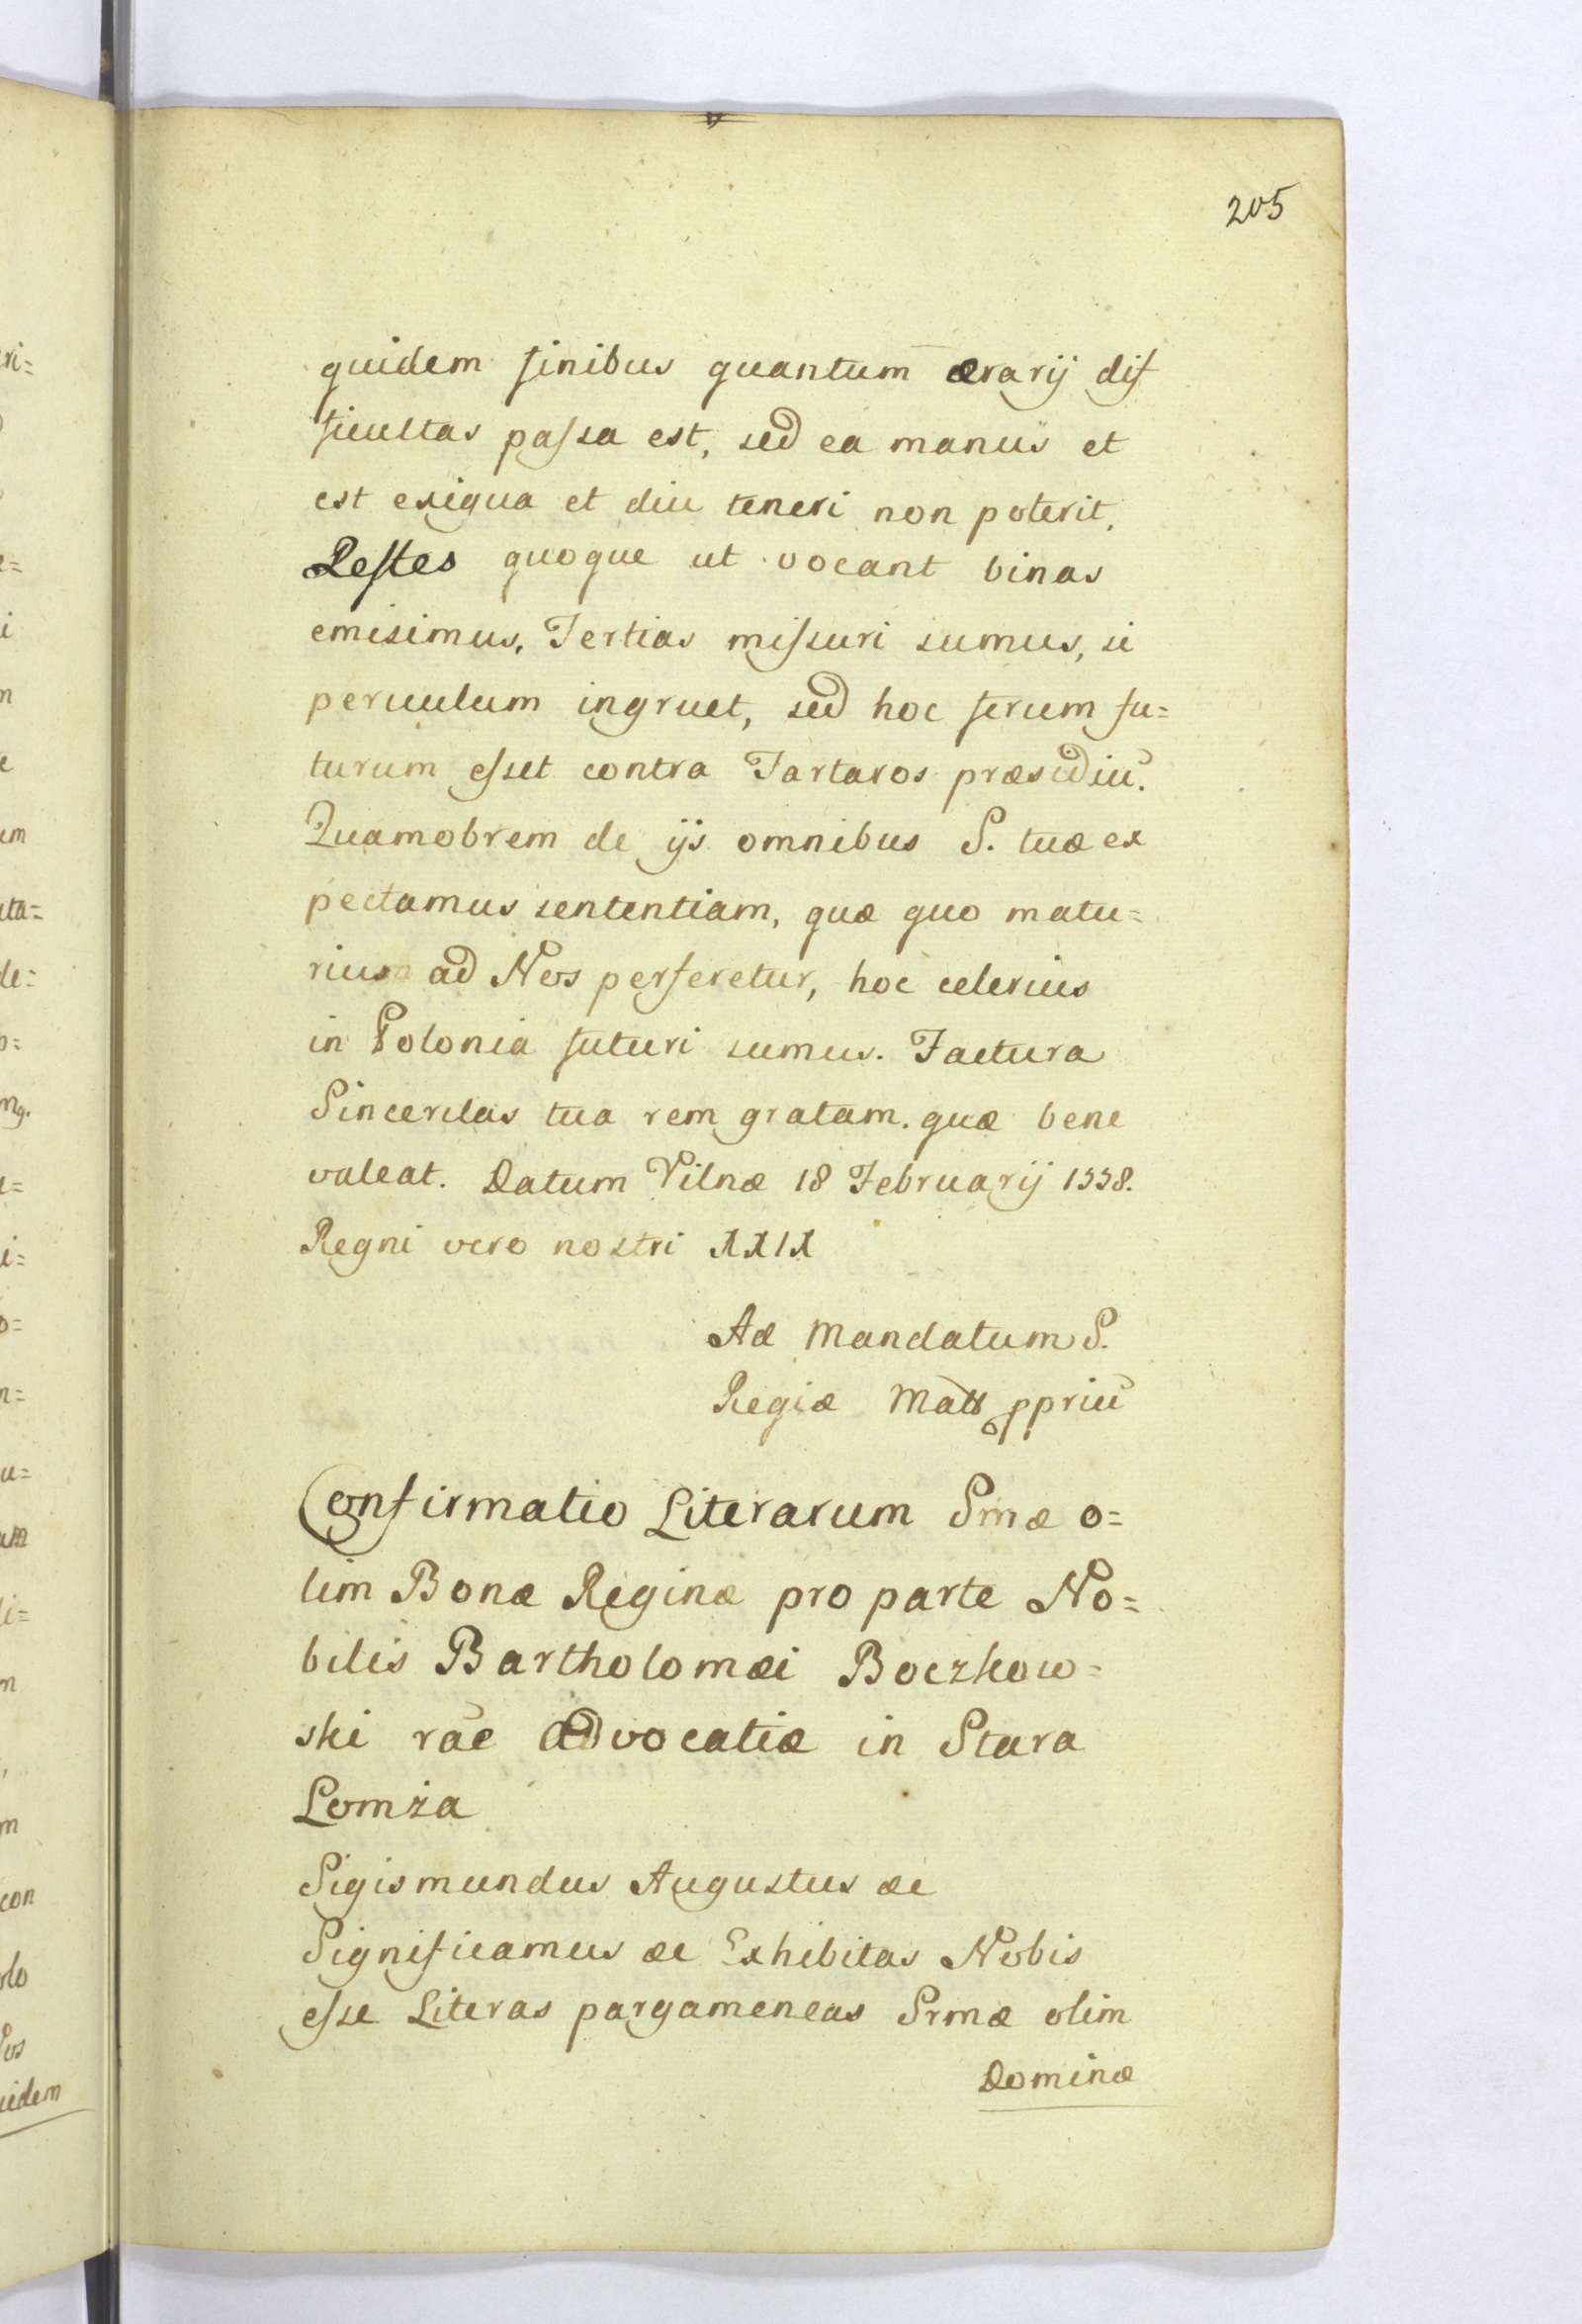 205
quidem finibus quantum ærarij dif
ficultas passa est, sed ea manus et
est exigua et diu teneri non poterit.
Restes quoque ut vocant binas
emisimus, Tertias missuri sumus, si
periculum ingruet, sed hoc serum fu=
turum esset contra Tartaros præsidiū.
Quamobrem de ijs omnibus S. tuæ ex
pectamus sententiam, quæ quo matu=
rius ad Nos perferetur, hoc celerius
in Polonia futuri sumus. Factura
Sinceritas tua rem gratam. quæ bene
valeat. Datum Vilnæ 18 Februarij 1558.
Regni vero nostri XXIX
Ad Mandatum S.
Regiæ Mattis ppriū
Confirmatio Literarum Smæ o=
lim Bonæ Reginæ pro parte No=
bilis Bartholomæi Boczkow=
ski rāe advocatiæ in Stara
Lomża
Sigismundus Augustus &c
Significamus &c Exhibitas Nobis
esse Literas pargameneas Srmæ olim
Dominæ